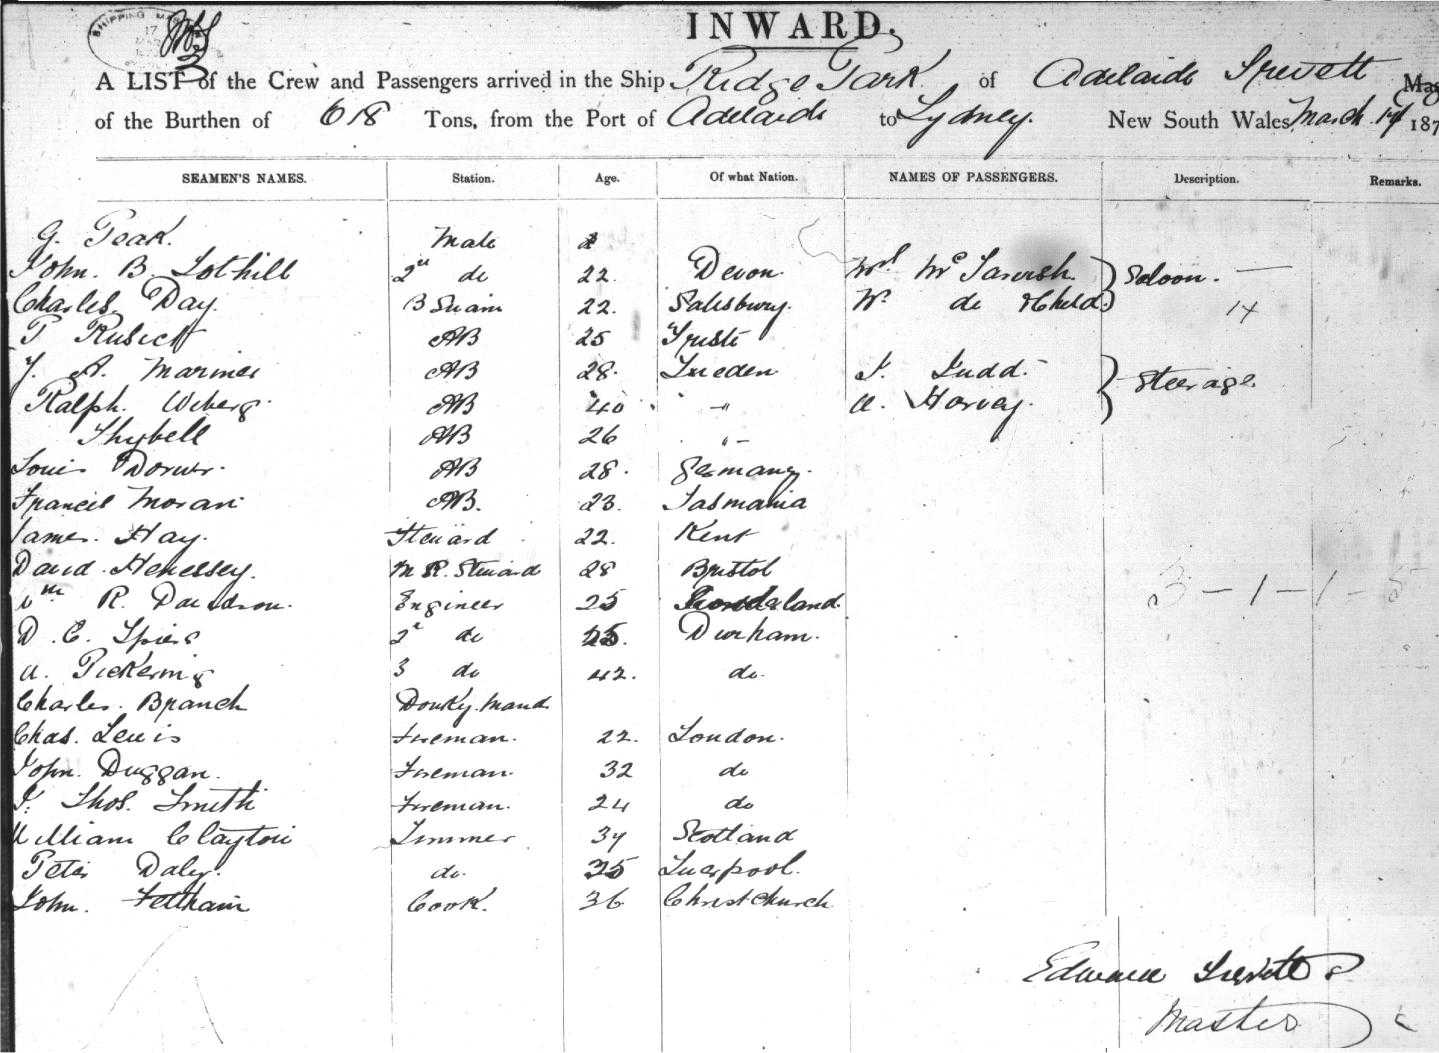 SHIPPING MAS
17
INWARD.
A LIST of the Crew and Passengers arrived in the Ship Ridge Park of Adelaide Trevett
of the Burthen of 618 Tons, from the Port of Adelaide to Sydney. New South Wales March 17 187
SEAMEN'S NAMES. Station. Age. Of what Nation. NAMES OF PASSENGERS. Description. Remarks.
G. Peak. Mate
John. B. Tothill 2nd do 22. Devon. Mrs McTavish. Saloon.
Charles Day. B Swain 22. Salisbury. Mr do & Child 14
P Rusick AB 25 Trieste
J. A. Mariner AB 28. Sweden J. Judd. Steerage
Ralph. Weberg. AB 40 -"- A. Harvey.
Thybell AB 26 "-
Louis Dorner. AB 28. Germany.
Francis Moran AB. 23. Tasmania
James. Hay. Steward 22. Kent
David. Henessey. M R. Steward 28 Bristol
Wm R. Davidson. Engineer 25
D. C. Spiers 2d do 25. Durham.
A. Pickering 3 do 42. do.
Charles. Branch Donkey. Mand
Chas. Lewis Fireman. 22. London.
John. Duggan. Fireman. 32 do
J. Thos. Smith Fireman. 24 do
William Clayton Trimmer 37 Scotland
Peter Daley. do. 35 Liverpool.
John. Feltham Cook. 36 Christchurch
3 - 1 - 1 - 5
Edward Trevett
Master